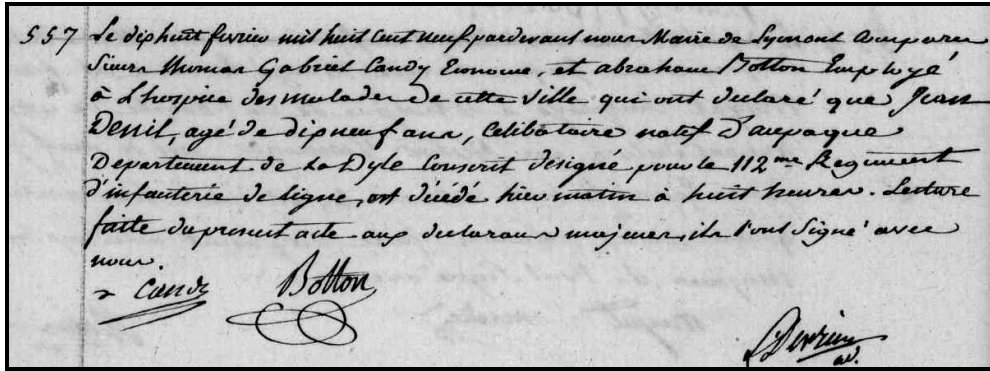 557 Le dix huit fevrier mil huit cent neuf pardevant nous Maire de Lyon ont comparu
Sieurs Thomas Gabriel Candy Econome, et abraham Botton Employé
à L'hospice des malades de cette ville qui ont declaré que Jean
Denil, agé de dix neuf ans, Celibataire natif D'aupaque
Departement de La Dyle Conscrit designé pour le 112me Regiment
d'infanterie de ligne, est décédé hier matin à huit heures. Lecture
faite du present acte aux declarans majeurs, ils l'ont Signé avec
nous.
Candy Botton